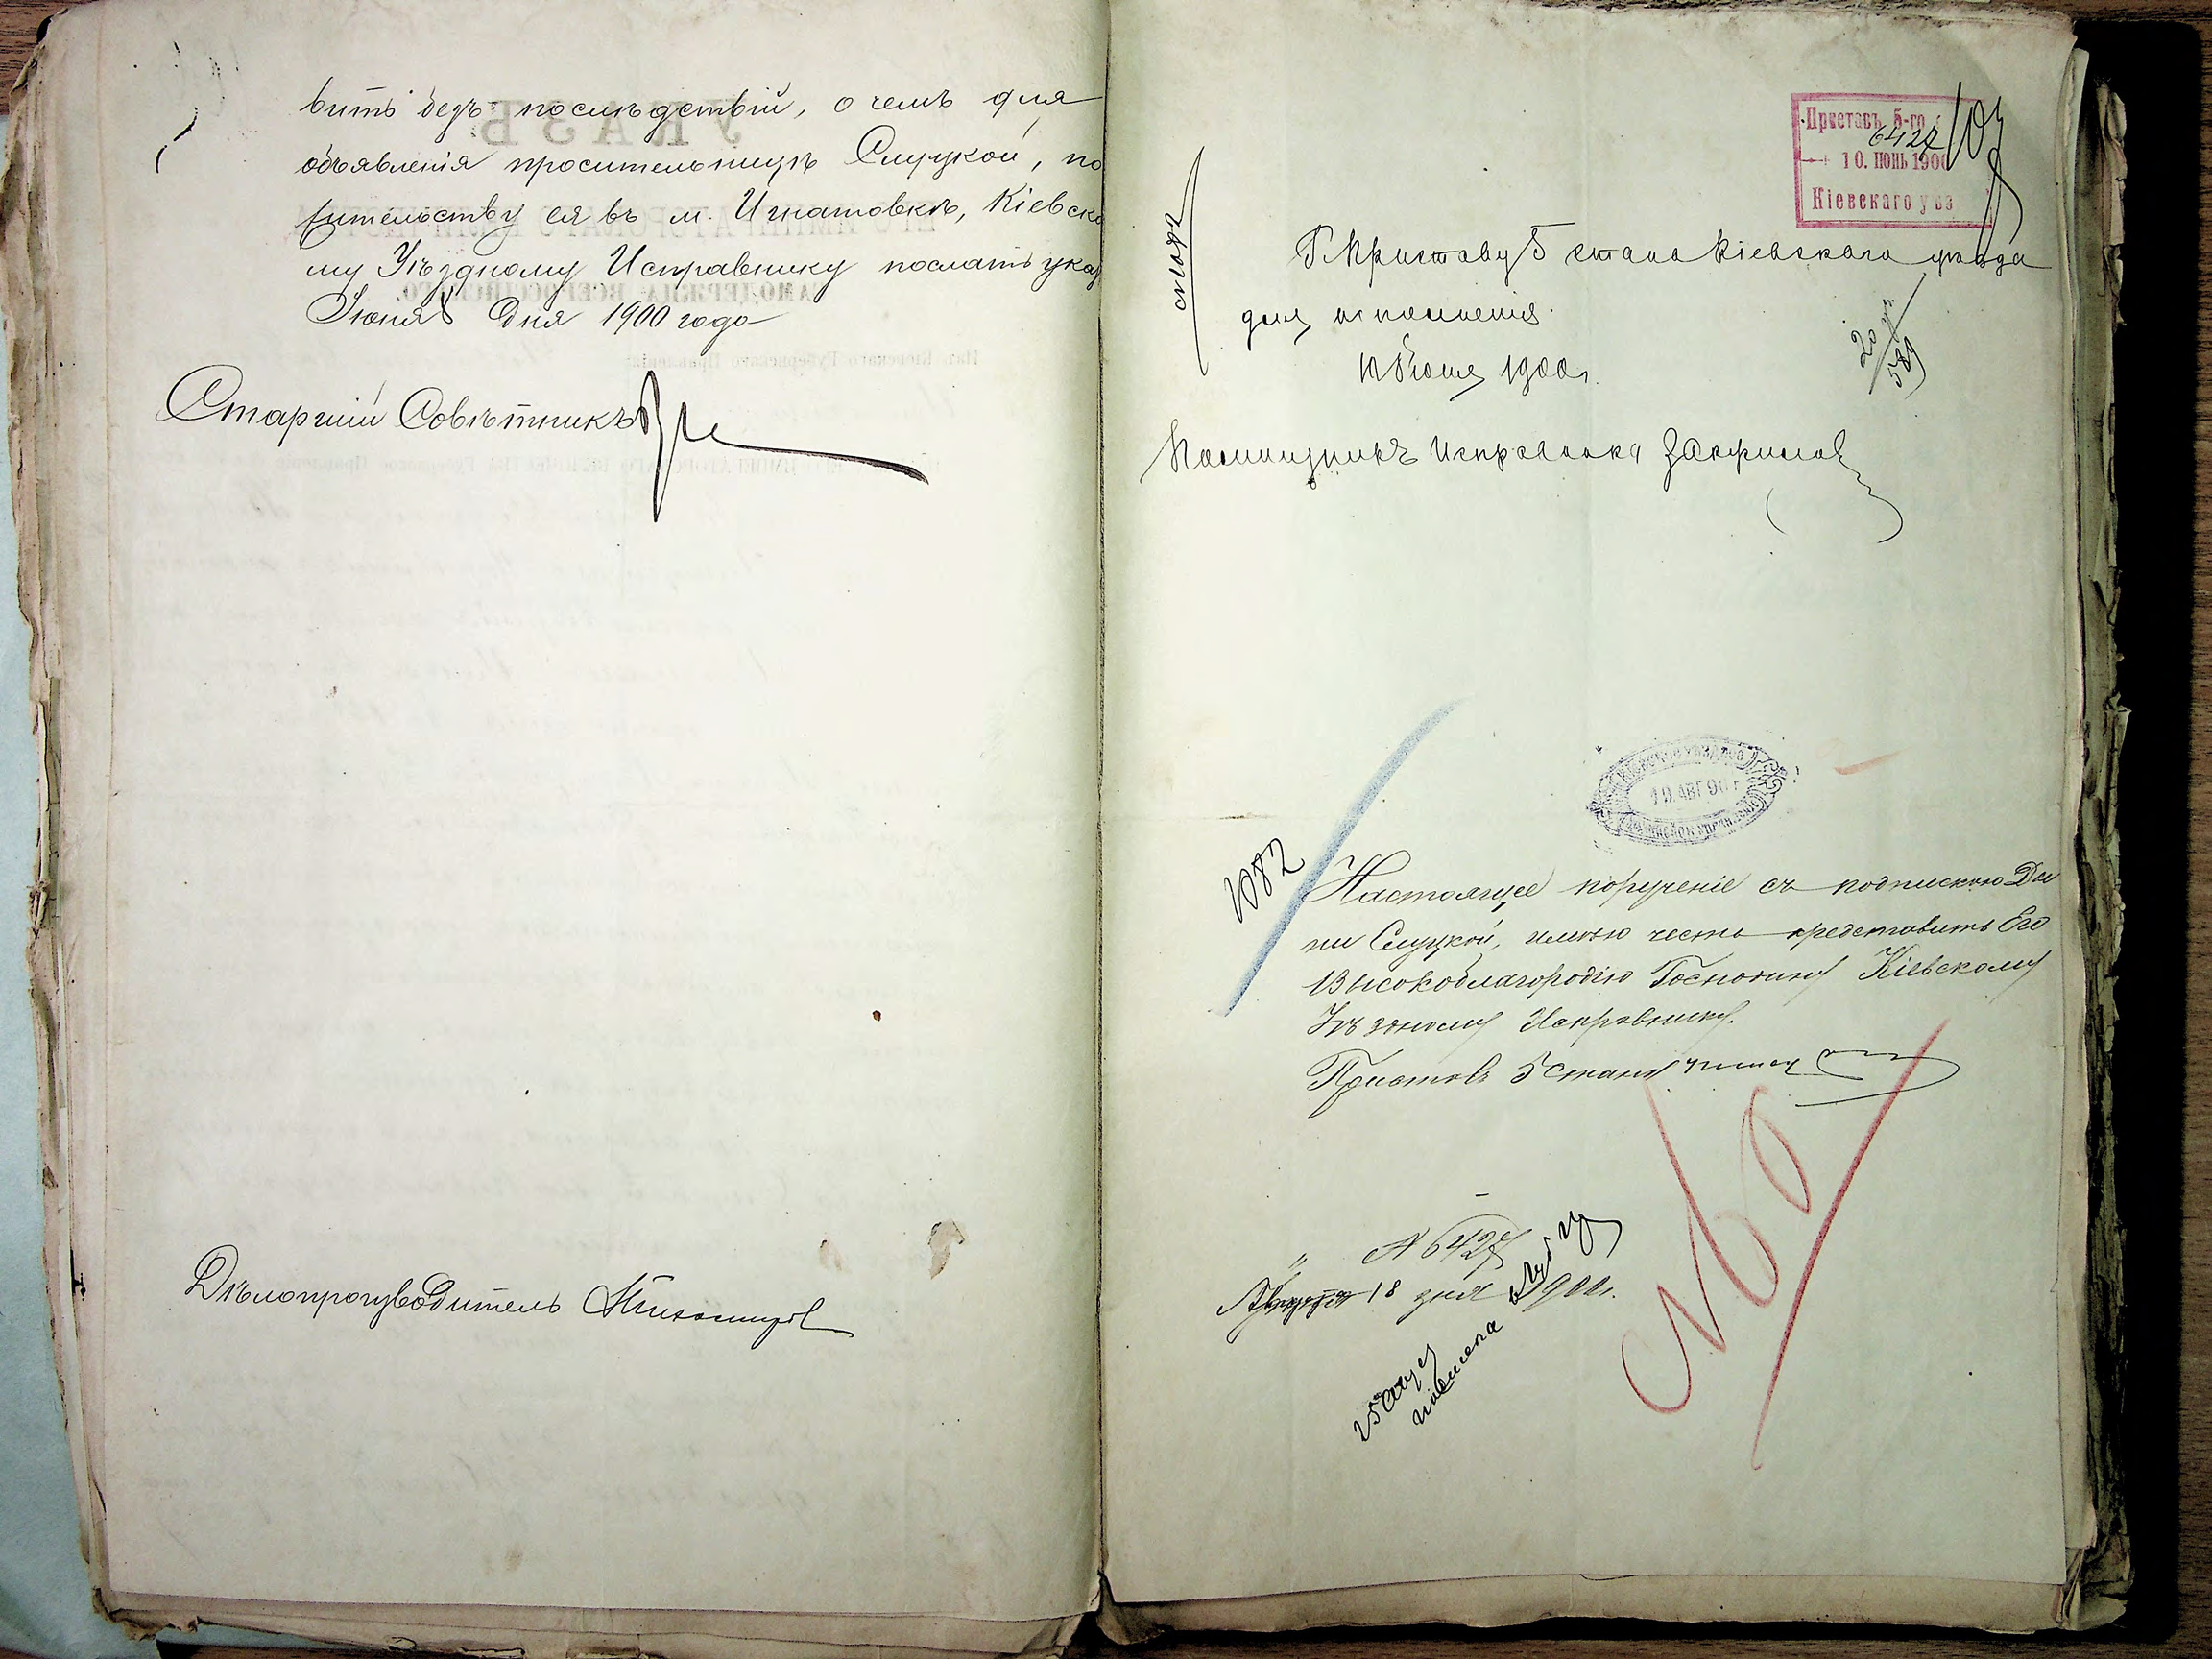 вить безъ послѣдствій, о чемъ для
объявленія просительницѣ Слуцкой, по
жительству ея въ м. Игнатовкѣ, Кіевско
му Уѣздному Исправнику послать указ
Іюня 8 дня 1900 года
Старшій Совѣтникъ
Дѣлопроизводитель
Приставъ 5-го
6427
10. ІЮНЬ 1900
Кіевскаго уѣз
Г. Приставу 5 стана Кіевскаго уѣзда
для исполненія.
10 Іюня 1900 г.
20
589
Помощникъ Исправника
10 АВГ 90 г
1082
Настоящее порученіе съ подпискою Ды
ни Слуцкой, имѣю честь представить Его
Высокоблагородію Господину Кіевскому
Уѣздному Исправнику.
Приставъ 5 стана
№ 6427
Августа 18 дня 1900 г.